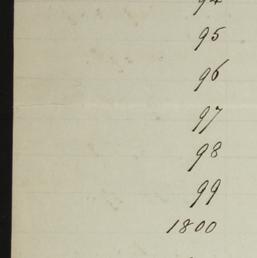 94
95
96
97
98
99
1800